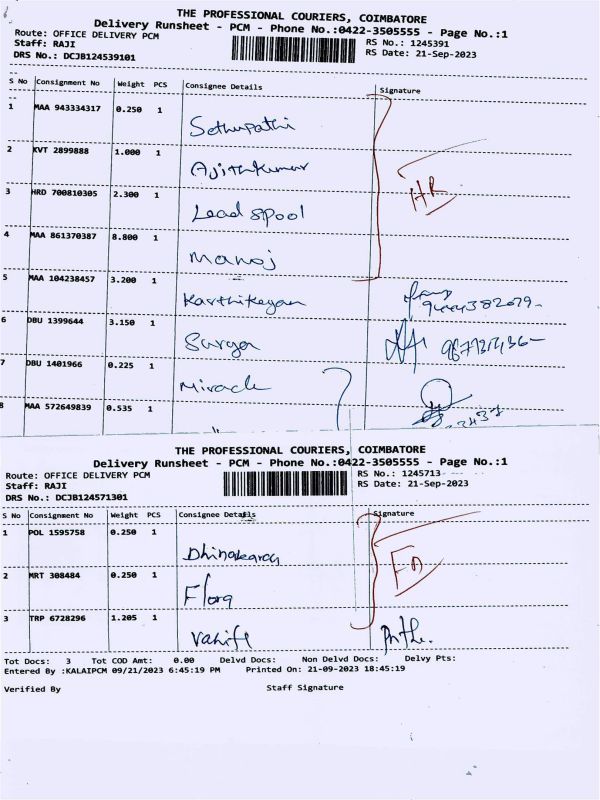 THE PROFESSIONAL COURIERS, COIMBATORE
Delivery Runsheet - PCM - Phone No.:0422-3505555 - Page No.:1
Route: OFFICE DELIVERY PCM
RS No.: 1245391
Staff: RAJI
RS Date: 21-Sep-2023
DRS No.: DCJB124539101
S No Consignment No Weight PCS Consignee Details Signature
1 MAA 943334317 0.250 1 Sethupathi
2 KVT 2899888 1.000 1 Ajithkumar
HR
3 HRD 700810305 2.300 1 Lead spool
4 MAA 861370387 8.800 1 Manoj
5 MAA 104238457 3.200 1 Karthikeyan
6 DBU 1399644 3.150 1 Surya
7 DBU 1401966 0.225 1 Miracle
8 MAA 572649839 0.535 1
THE PROFESSIONAL COURIERS, COIMBATORE
Delivery Runsheet - PCM - Phone No.:0422-3505555 - Page No.:1
Route: OFFICE DELIVERY PCM
RS No.: 1245713
Staff: RAJI
RS Date: 21-Sep-2023
DRS No.: DCJB124571301
S No Consignment No Weight PCS Consignee Details Signature
1 POL 1595758 0.250 1 Dhinakaran
2 MRT 308484 0.250 1 Flora
3 TRP 6728296 1.205 1
Tot Docs: 3 Tot COD Amt: 0.00 Delvd Docs: Non Delvd Docs: Delvy Pts:
Entered By :KALAIPCM 09/21/2023 6:45:19 PM Printed On: 21-09-2023 18:45:19
Verified By Staff Signature